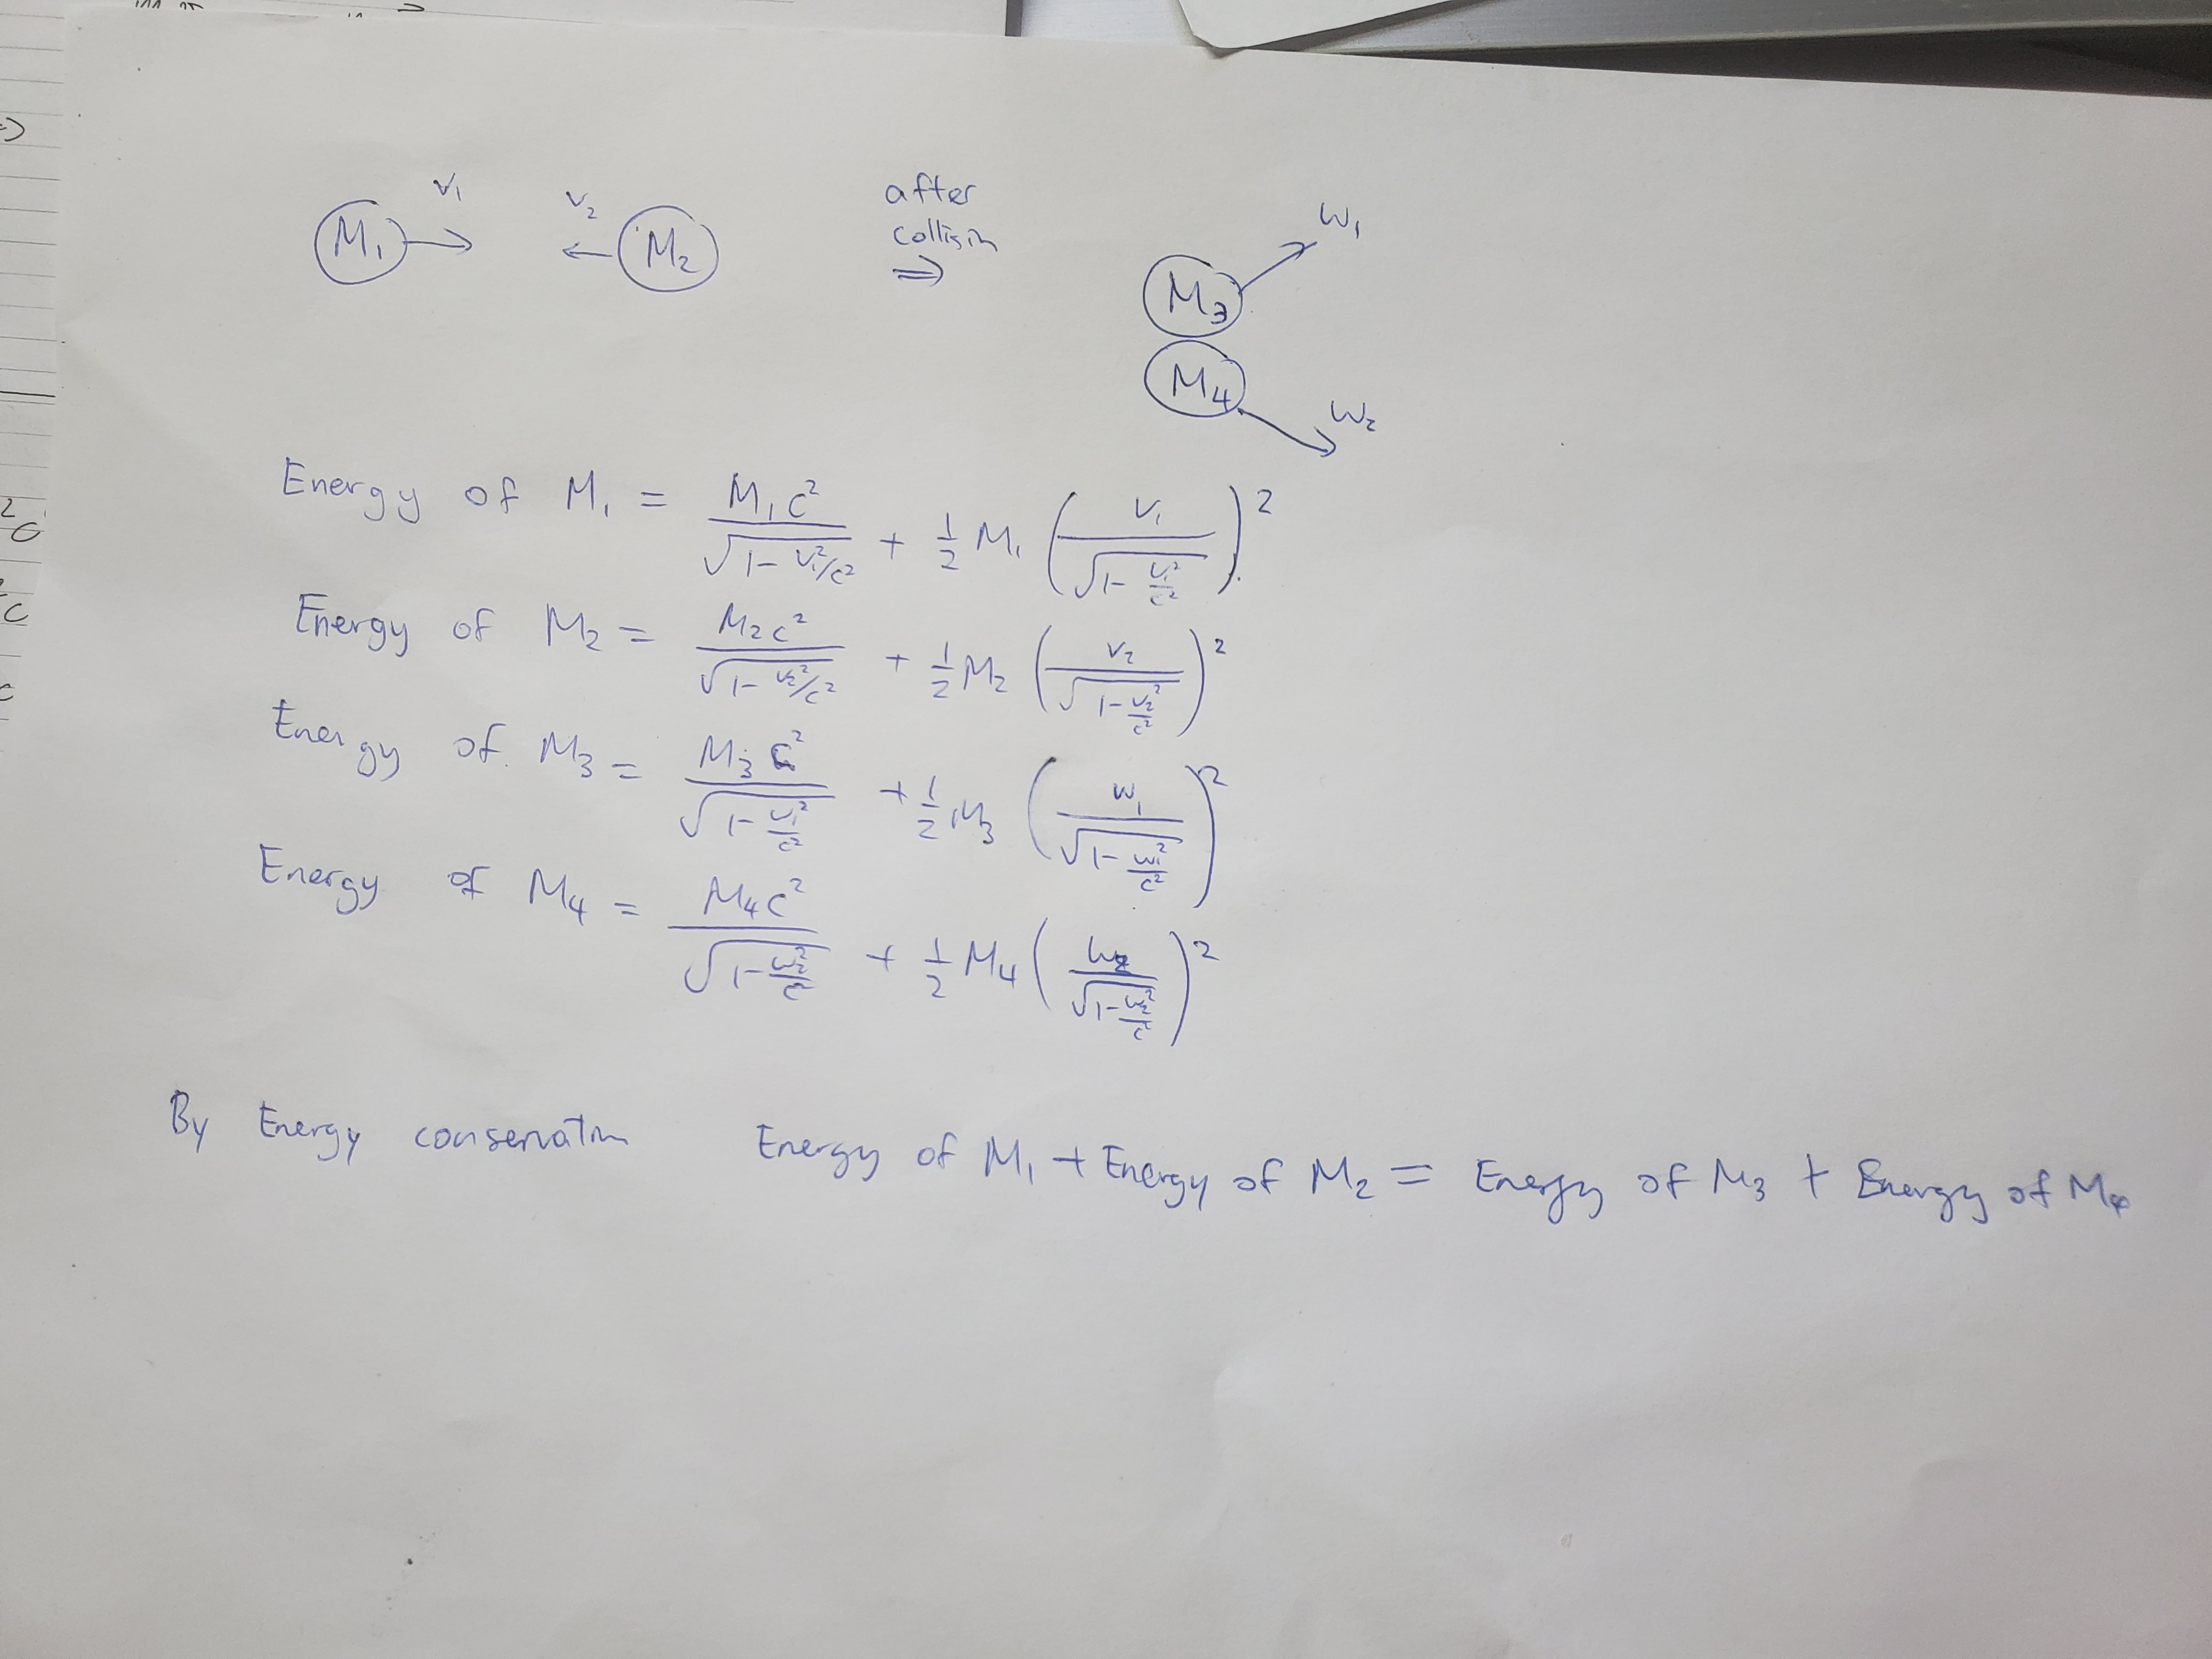 M₁ v₁ v₂ M₂ after collisin ⇒ M₃ w₁
M₄ w₂
Energy of M₁ = M₁c²/√(1-v₁²/c²) + 1/2 M₁ (v₁/√(1-v₁²/c²))²
Energy of M₂ = M₂c²/√(1-v₂²/c²) + 1/2 M₂ (v₂/√(1-v₂²/c²))²
Energy of M₃ = M₃c²/√(1-w₁²/c²) + 1/2 M₃ (w₁/√(1-w₁²/c²))²
Energy of M₄ = M₄c²/√(1-w₂²/c²) + 1/2 M₄ (w₂/√(1-w₂²/c²))²
By Energy conservatin Energy of M₁ + Energy of M₂ = Energy of M₃ + Energy of M₄